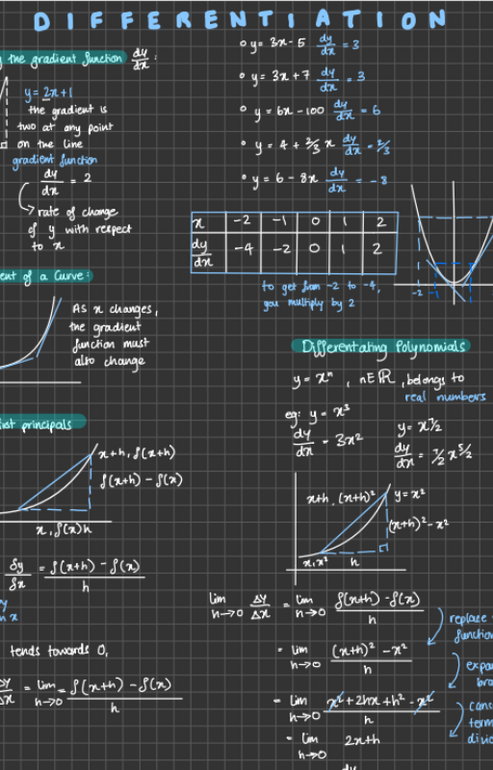 DIFFERENTIATION
y the gradient function dy/dx :
y = 2x+1
the gradient is
two at any point
on the line
gradient function
dy/dx = 2
rate of change
of y with respect
to x
y = 3x - 5 dy/dx = 3
y = 3x + 7 dy/dx = 3
y = 6x - 100 dy/dx = 6
y = 4 + 2/3 x dy/dx = 2/3
y = 6 - 8x dy/dx = -8
x -2 -1 0 1 2
dy/dx -4 -2 0 1 2
to get from -2 to -4,
you multiply by 2
-2 -1
ent of a Curve:
As x changes,
the gradient
function must
also change
Differentating Polynomials
y = xⁿ , n∈ℝ, belongs to
real numbers
eg: y = x³
dy/dx = 3x²
y = x^7/2
dy/dx = 7/2 x^5/2
rst principals
x+h, f(x+h)
f(x+h) - f(x)
x, f(x) h
δy/δx = f(x+h) - f(x) / h
tends towards 0,
Δy/Δx = lim h→0 = f(x+h) - f(x) / h
x+h, (x+h)²
y = x²
(x+h)² - x²
x, x²
h
lim h→0 Δy/Δx = lim h→0 f(x+h) - f(x) / h
replace
function
= lim h→0 (x+h)² - x² / h
= lim h→0 x² + 2hx + h² - x² / h
= lim h→0 2x+h
dy